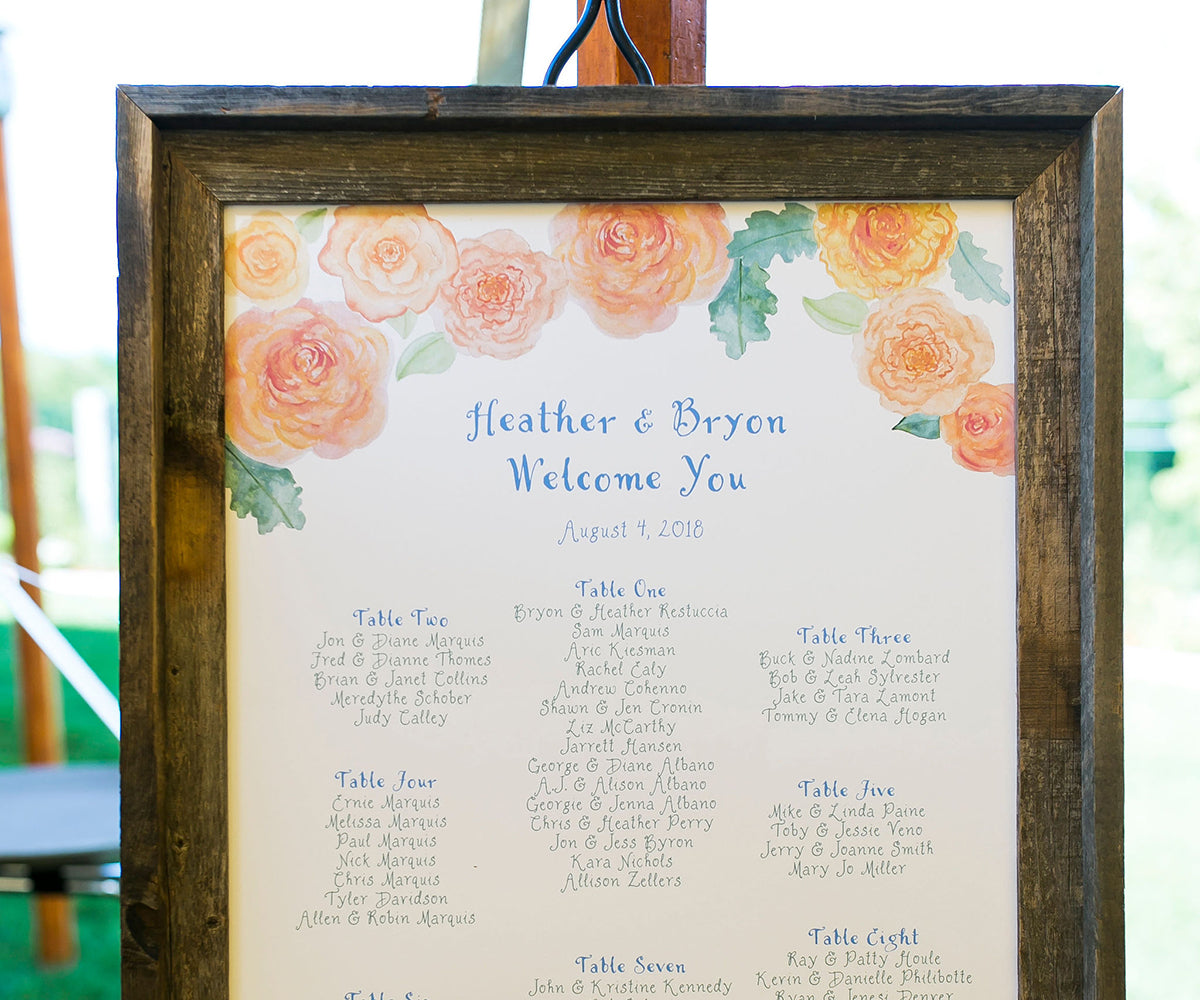 Heather & Bryon
Welcome You
August 4, 2018
Table One
Bryon & Heather Restuccia
Sam Marquis
Aric Kiesman
Rachel Ealy
Andrew Cohenno
Shawn & Jen Cronin
Liz McCarthy
Jarrett Hansen
George & Diane Albano
A.J. & Alison Albano
Georgie & Jenna Albano
Chris & Heather Perry
Jon & Jess Byron
Kara Nichols
Allison Zellers
Table Two
Jon & Diane Marquis
Fred & Dianne Thomes
Brian & Janet Collins
Meredythe Schober
Judy Calley
Table Three
Buck & Nadine Lombard
Bob & Leah Sylvester
Jake & Tara Lamont
Tommy & Elena Hogan
Table Four
Ernie Marquis
Melissa Marquis
Paul Marquis
Nick Marquis
Chris Marquis
Tyler Davidson
Allen & Robin Marquis
Table Five
Mike & Linda Paine
Toby & Jessie Veno
Jerry & Joanne Smith
Mary Jo Miller
Table Six
Table Seven
John & Kristine Kennedy
Table Eight
Ray & Patty Houle
Kevin & Danielle Philibotte
Ryan & Jenesi Denver